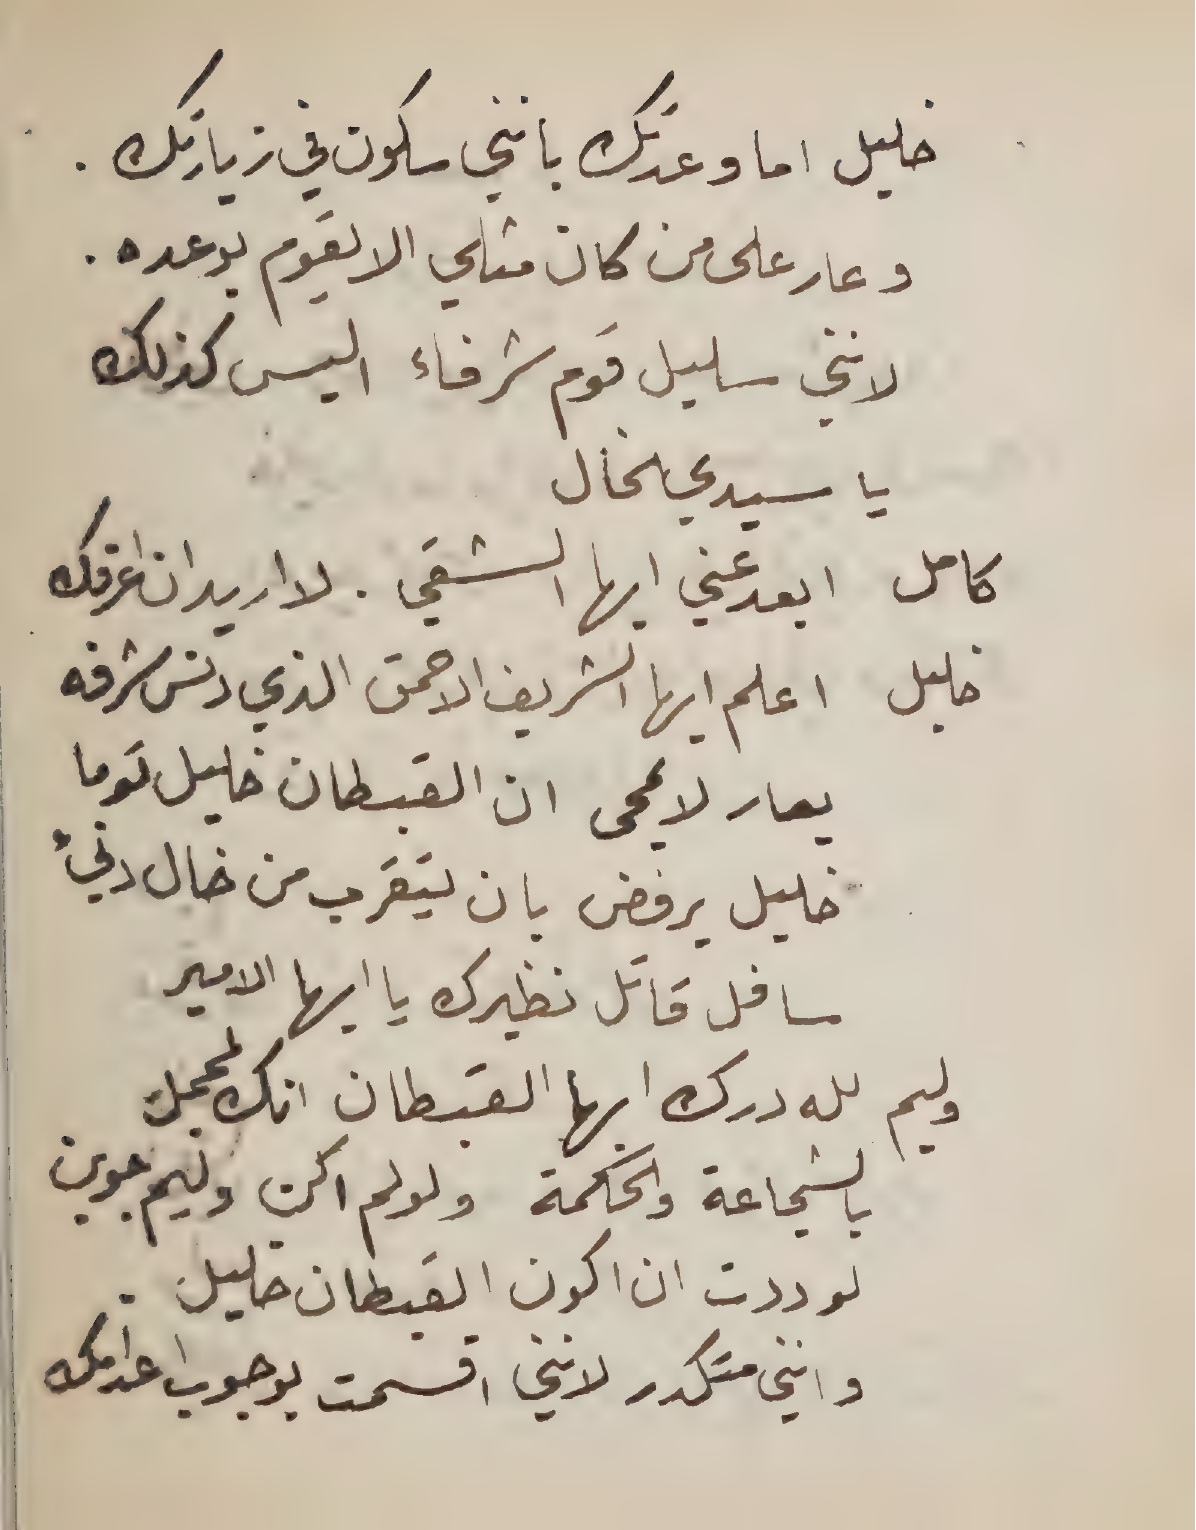 خليل اما وعدتك بانني ساكون في زيارتك .
وعار على من كان مثلي الا يقوم بوعده .
لانني سليل قوم شرفاء اليس كذلك
يا سيدي الخال
كامل ابعد عني ايها الشقي . لا اريد ان اعرفك
خليل اعلم ايها الشريف الاحمق الذي دنس شرفه
بعار لا يمحى ان القبطان خليل توما
خليل يرفض بان يتقرب من خال دنيء
سافل قاتل نظيرك يا ايها الامير
وليم لله درك ايها القبطان انك
بالشجاعة والحكمة ولو لم اكن وليم جوين
لوددت ان اكون القبطان خليل .
وانني متكدر لانني اقسمت بوجوب اعدامك